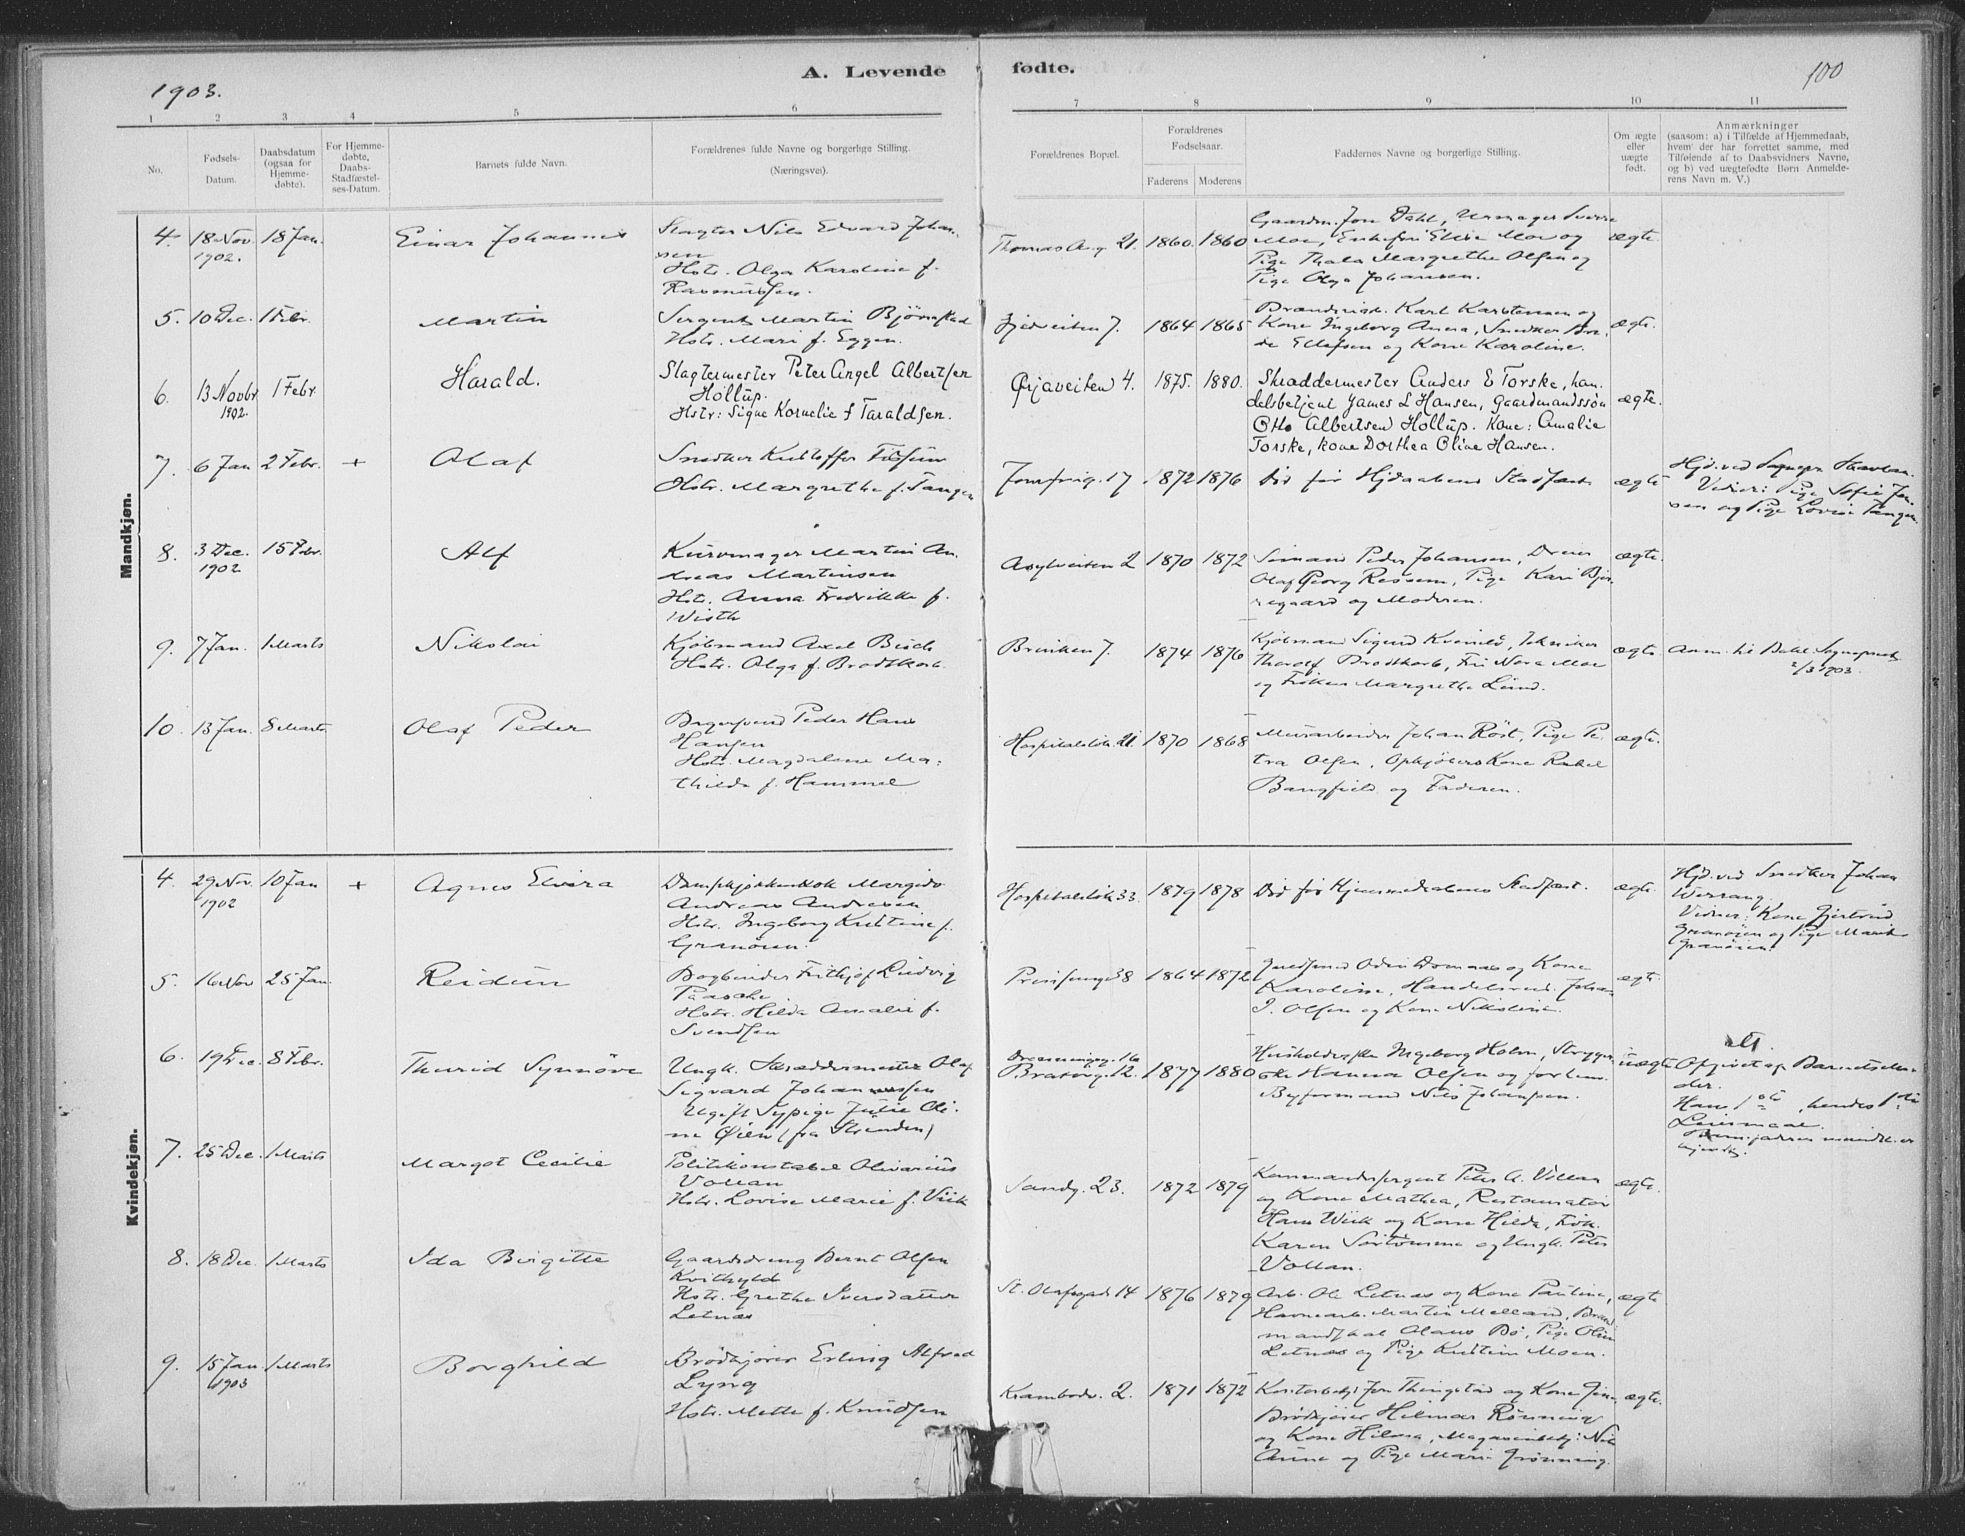 1903.
A. Levende fødte.
100
1 2 3 4 5 6 7 8 9 10 11
No.
Fødsels-
Datum.
Daabsdatum
(ogsaa for
Hjemme-
døbte).
For Hjemme-
døbte,
Daabs-
Stadfæstel-
ses-Datum.
Barnets fulde Navn.
Forældrenes fulde Navne og borgerlige Stilling.
(Næringsvei).
Forældrenes Bopæl.
Forældrenes
Fødselsaar.
Faderens Moderens
Faddernes Navne og borgerlige Stilling.
Om ægte
eller
uægte
født.
Anmærkninger
(saasom: a) i Tilfælde af Hjemmedaab,
hvem der har forrettet samme, med
Tilføiende af to Daabsvidners Navne,
og b) ved uægtefødte Børn Anmelde-
rens Navn m. V.)
Mandkjøn.
4. 18 Nov. 1902. 18 Jan. Einar Johannes
Slagter Nils Edvard Johan-
sen
Hstr. Olga Karoline f.
Rasmussen.
Thomas Ang. 21. 1860. 1860
Gaardm. Jon Dahl, Urmager Sverre
Moe, Enkefru Elise Moe og
Pige Thala Margrethe Olsen og
Pige Olga Johansen.
ægte.
5. 10 Dec. 1 Febr. Martin
Sergent Martin Bjørnstad
Hstr. Mari f. Eggen.
7. 1864 1865
Karl Karstensen og
Kone Ingeborg Anna, Snedker
Ellefsen og Kone Karoline.
ægte.
6. 13 Novbr 1902. 1 Febr. Harald.
Slagtermester Peter Angel Albertsen
Hollup.
Hstr: Signe Kornelie f Taraldsen.
Ørjaveiten 4. 1875. 1880.
Skræddermester Anders E Torske, han-
delsbetjent James L Hansen, Gaardmandssøn
Otto Albertsen Hollup. Kone: Amalie
Torske, kone Dorthea Oline Hansen.
ægte.
7. 6 Jan 2 Febr. + Olaf
Snedker
Hstr. Margrethe f. Tangen
Jomfrug. 17 1872 1876
Død før Hjdaabens Stadfæst.
ægte
Hjd. ved Sognepr.
Vidner: Pige Sofie Jen-
sen og Pige Lovise Tangen.
8. 3 Dec. 1902 15 Febr. Alf
Kurvmager Martin An-
dreas Martinsen
Hstr. Anna Fredrikke f.
Wisth
Asylveiten 2 1870 1872
Sømand Peder Johansen, Dreier
Olaf Georg Ressem, Pige Kari Bjer-
regaard og Moderen.
ægte.
9. 7 Jan. 1 Marts Nikolai
Kjøbmand Axel Buch
Hstr. Olga f. Brodtkorb.
Brinken 7. 1874 1876
Kjøbmand Sigurd Kvenild, Tekniker
Thorolf Brodtkorb, Fru Nora Moe
og Frøken Margrethe Lund.
ægte
2/3 1903.
10. 13 Jan. 8 Marts Olaf Peder
Bagersvend Peder Hans
Hansen
Hstr. Magdalene Ma-
thilde f. Hammel
Hospitalsløk. 21. 1870 1868
Murarbeider Johan Röst, Pige Pe-
tra Olsen, Opkjøbers Kone Rakel
Bangfield og Faderen.
ægte.
Kvindekjøn.
4. 29 Nov. 1902 10 Jan + Agnes Elvira
Dampkjøkkenkok
Andreas Andresen
Hstr. Ingeborg Kristine f.
Granøien.
Hospitalsløk 33. 1879 1878
Død før Hjemmedaabens Stadfæst.
ægte.
Hjd. ved Snedker Johan
Wessang.
Vidner: Kone Gjertrud
Granøien og Pige Marit
Granøien.
5. 16 Nov 25 Jan. Reidun
Bogbinder Frithjof Ludvig
Paasche
Hstr. Hilda Amalie f.
Svendsen
Prinsensg. 38 1864 1872
Odin Domaas og Kone
Karoline, Handelsreis. Johan
J. Olsen og Kone Nikoline.
ægte.
6. 19 Dec. 8 Febr. Thurid Synnöve
Ungk. Skræddermester Olaf
Sigvard Johannessen
Ugift Sypige Julie Oli-
ne Øien (fra Strinden)
Dronningensg. 16
Bratörg. 12. 1877 1880
Husholderske Ingeborg Holm, Stryger-
ske Hanna Olsen og forhenv.
Byformand Nils Johansen.
uægte
Opgivet af Barnets Mo-
der.
Hans 1ste, hendes 1ste
Leiermaal.
7. 25 Dec. 1 Marts Margot Cecilie
Politikonstabel Olivarius
Vollan
Hstr. Lovise Marie f. Viik
Sandg. 23. 1872 1879
Kommandersergent Peter A. Vollan
og Kone Mathea, Restauratör
Hans Wiik og Kone Hilda, Frök.
Karen og Ungk. Peter
Vollan.
ægte.
8. 18 Dec. 1 Marts Ida Birgitte
Gaardsdreng Bernt Olsen
Kvithyld
Hstr. Grethe Iversdatter
Letnæs
St. Olafsgad. 14 1876 1879
Arb. Ole Letnæs og Kone Pauline,
Havnearb. Martin Melland,
Olaus Bö, Pige Oline
Letnæs og Pige Kristine Moen.
ægte
9. 15 Jan. 1903 1 Marts Borghild
Brödkjører Erling Alfred
Lyng
Hstr. Mette f. Knudsen
Krambodv. 2. 1871 1872
Kontorbetj. Jon Thingstad og Kone
Brödkjører Hilmar Rönning
og Kone Hilma, Magasinbetj. Nils
Aune og Pige Marie Grönning.
ægte.